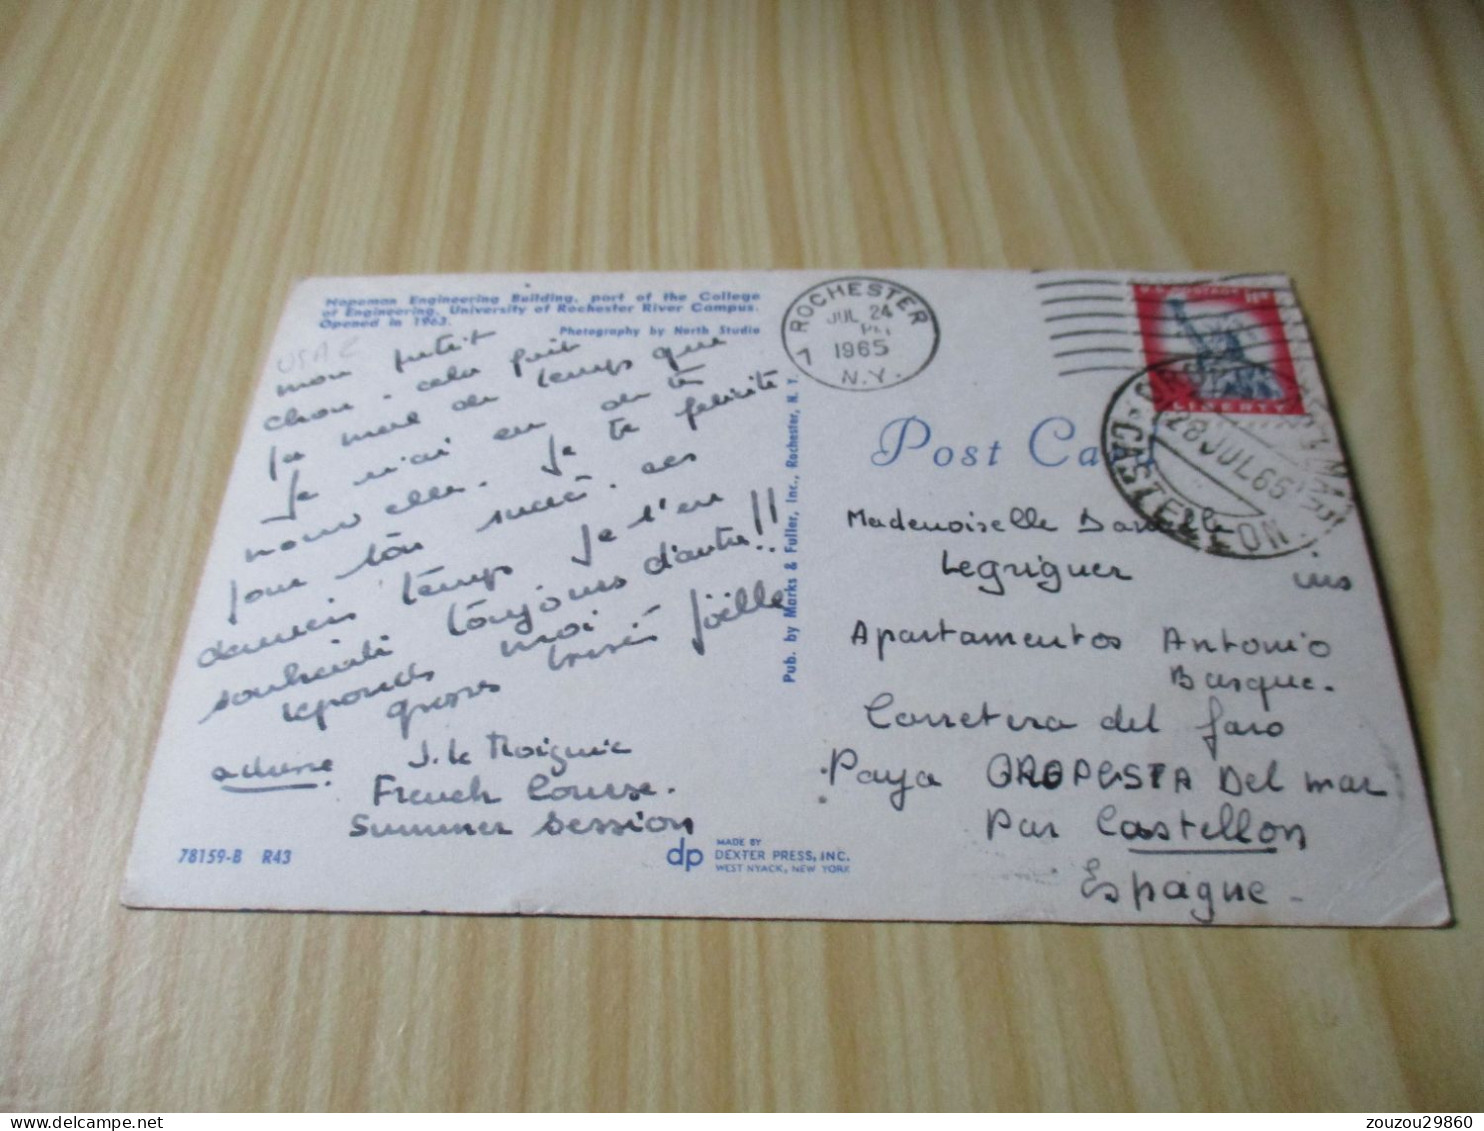 Hopeman Engineering Building, part of the College
of Engineering, University of Rochester River Campus.
Opened in 1963.
Photography by North Studio
USA 2
mon petit
chou. cela fait
pas mal de temps que
je n'ai eu de tes
nouvelles. Je te félicite
pour ton succès. ces
derniers temps je t'en
souhaite toujours d'autres!!
reponds moi
grosses bises Joëlle
adresse J. le
French Course.
Summer Session
78159-B R43
dp
MADE BY
DEXTER PRESS, INC.
WEST NYACK, NEW YORK
Pub. by Marks & Fuller, Inc., Rochester, N. Y.
ROCHESTER
JUL 24
PM
1965
N.Y.
LIBERTY
28 JUL 65
CASTELLON
Post Card
Mademoiselle Danielle
Legriguer
Apartamentos Antonio
Basque.
Carretera del faro
Paya OROPESTA Del mar
par Castellon
Espagne -
zouzou29860